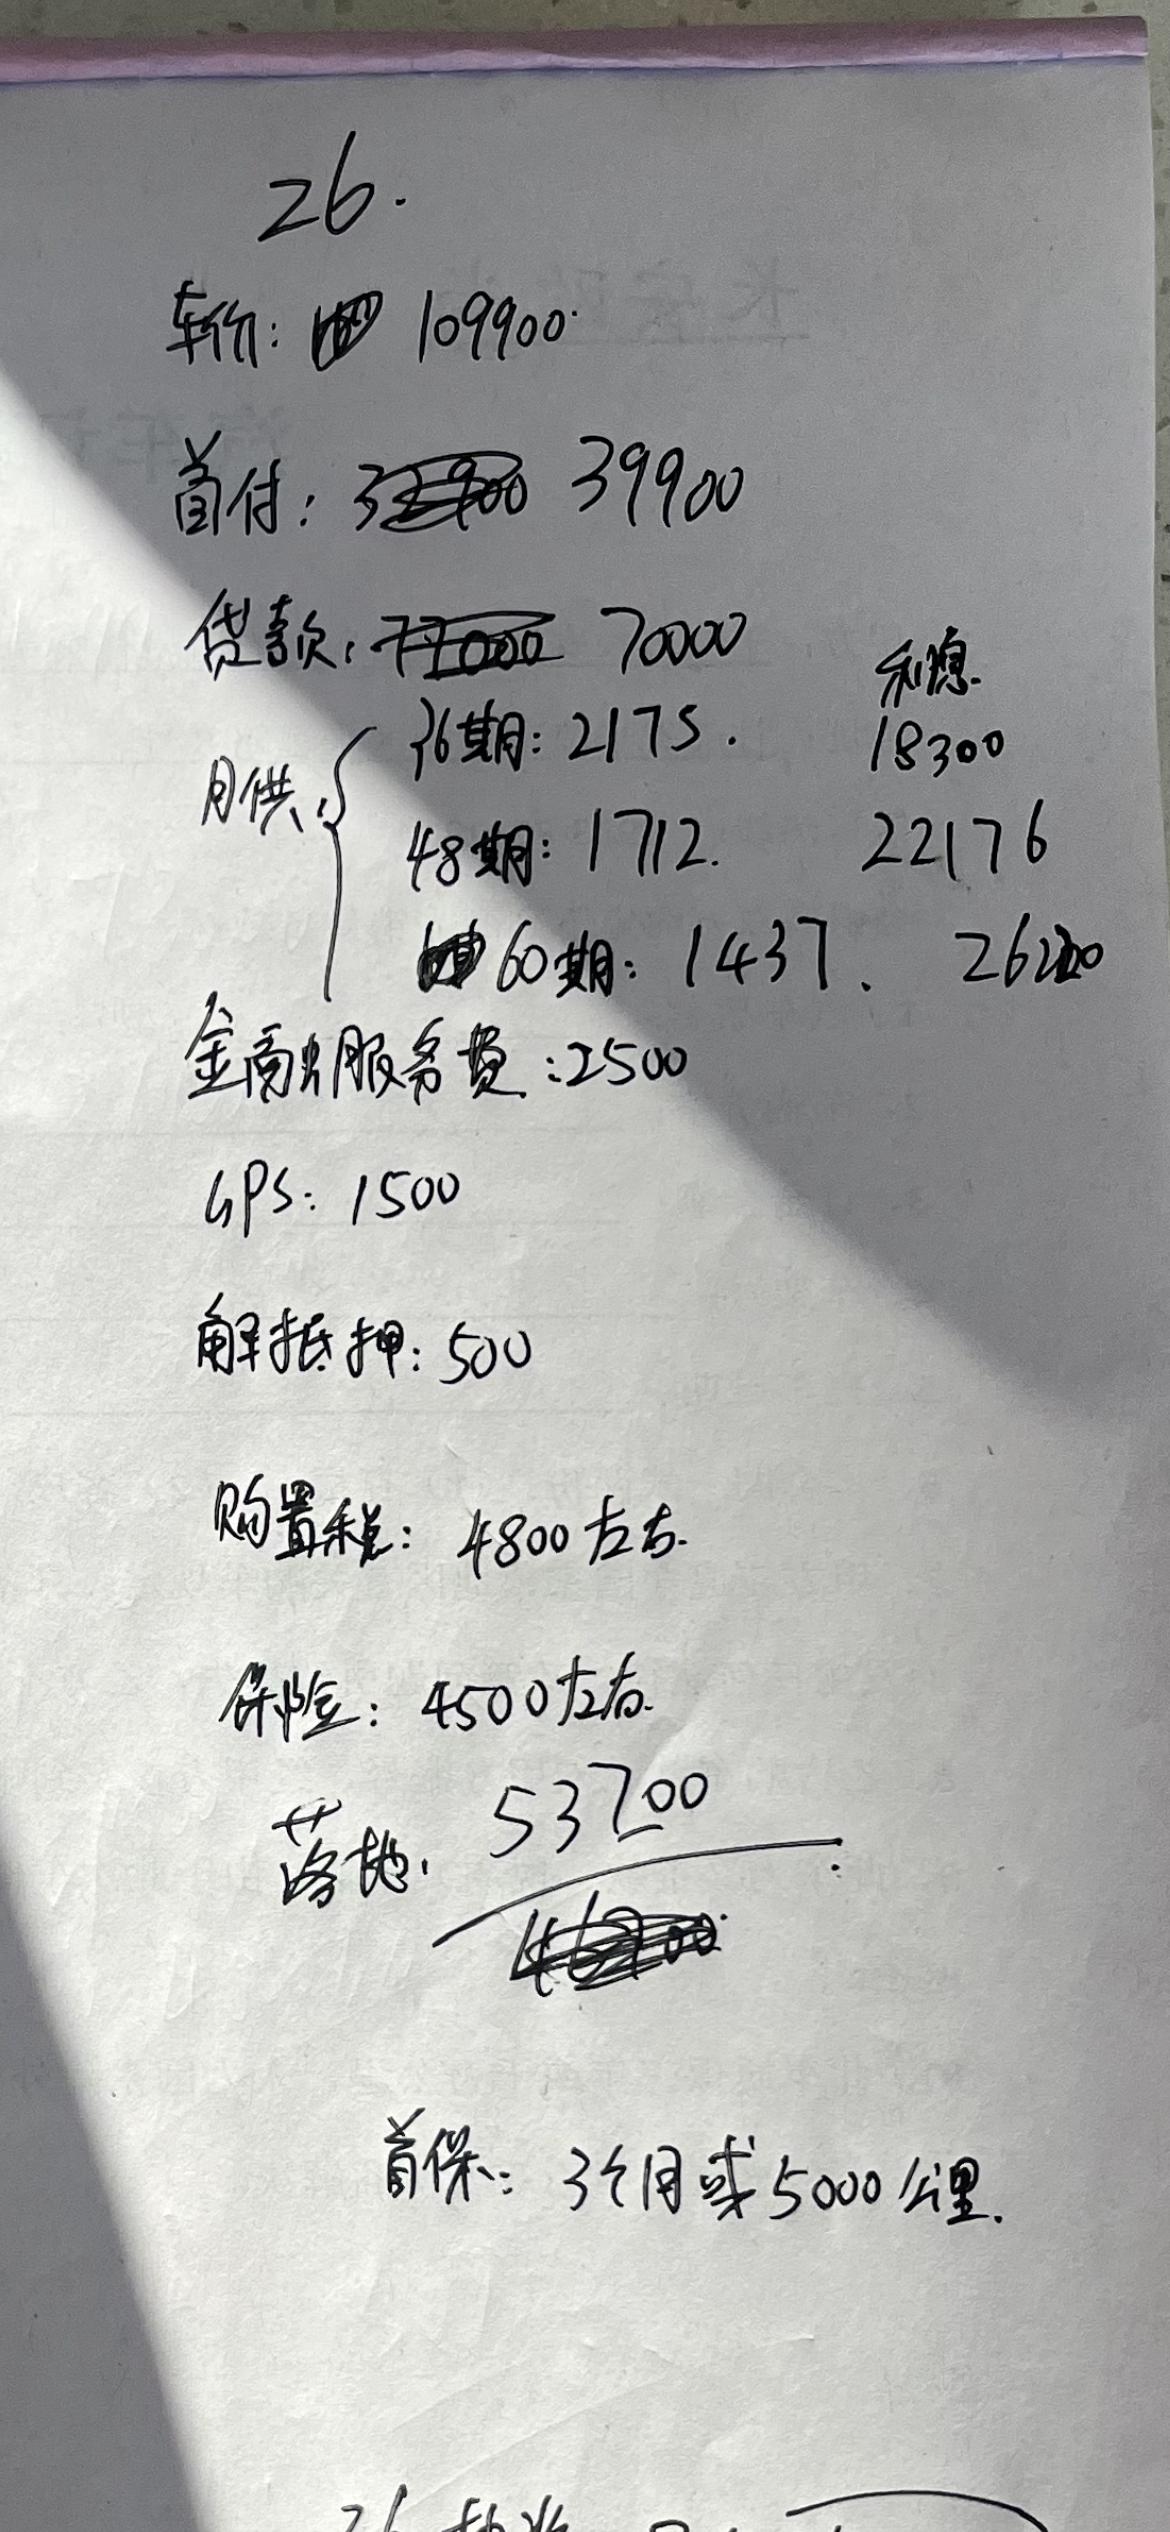 26.
车价: 109900.
首付: 39900
贷款: 70000
利息.
月供: 36期: 2175. 18300
48期: 1712. 22176
60期: 1437. 26220
金融服务费: 2500
GPS: 1500
解抵押: 500
购置税: 4800左右.
保险: 4500左右.
落地: 53700
首保: 3个月或5000公里.